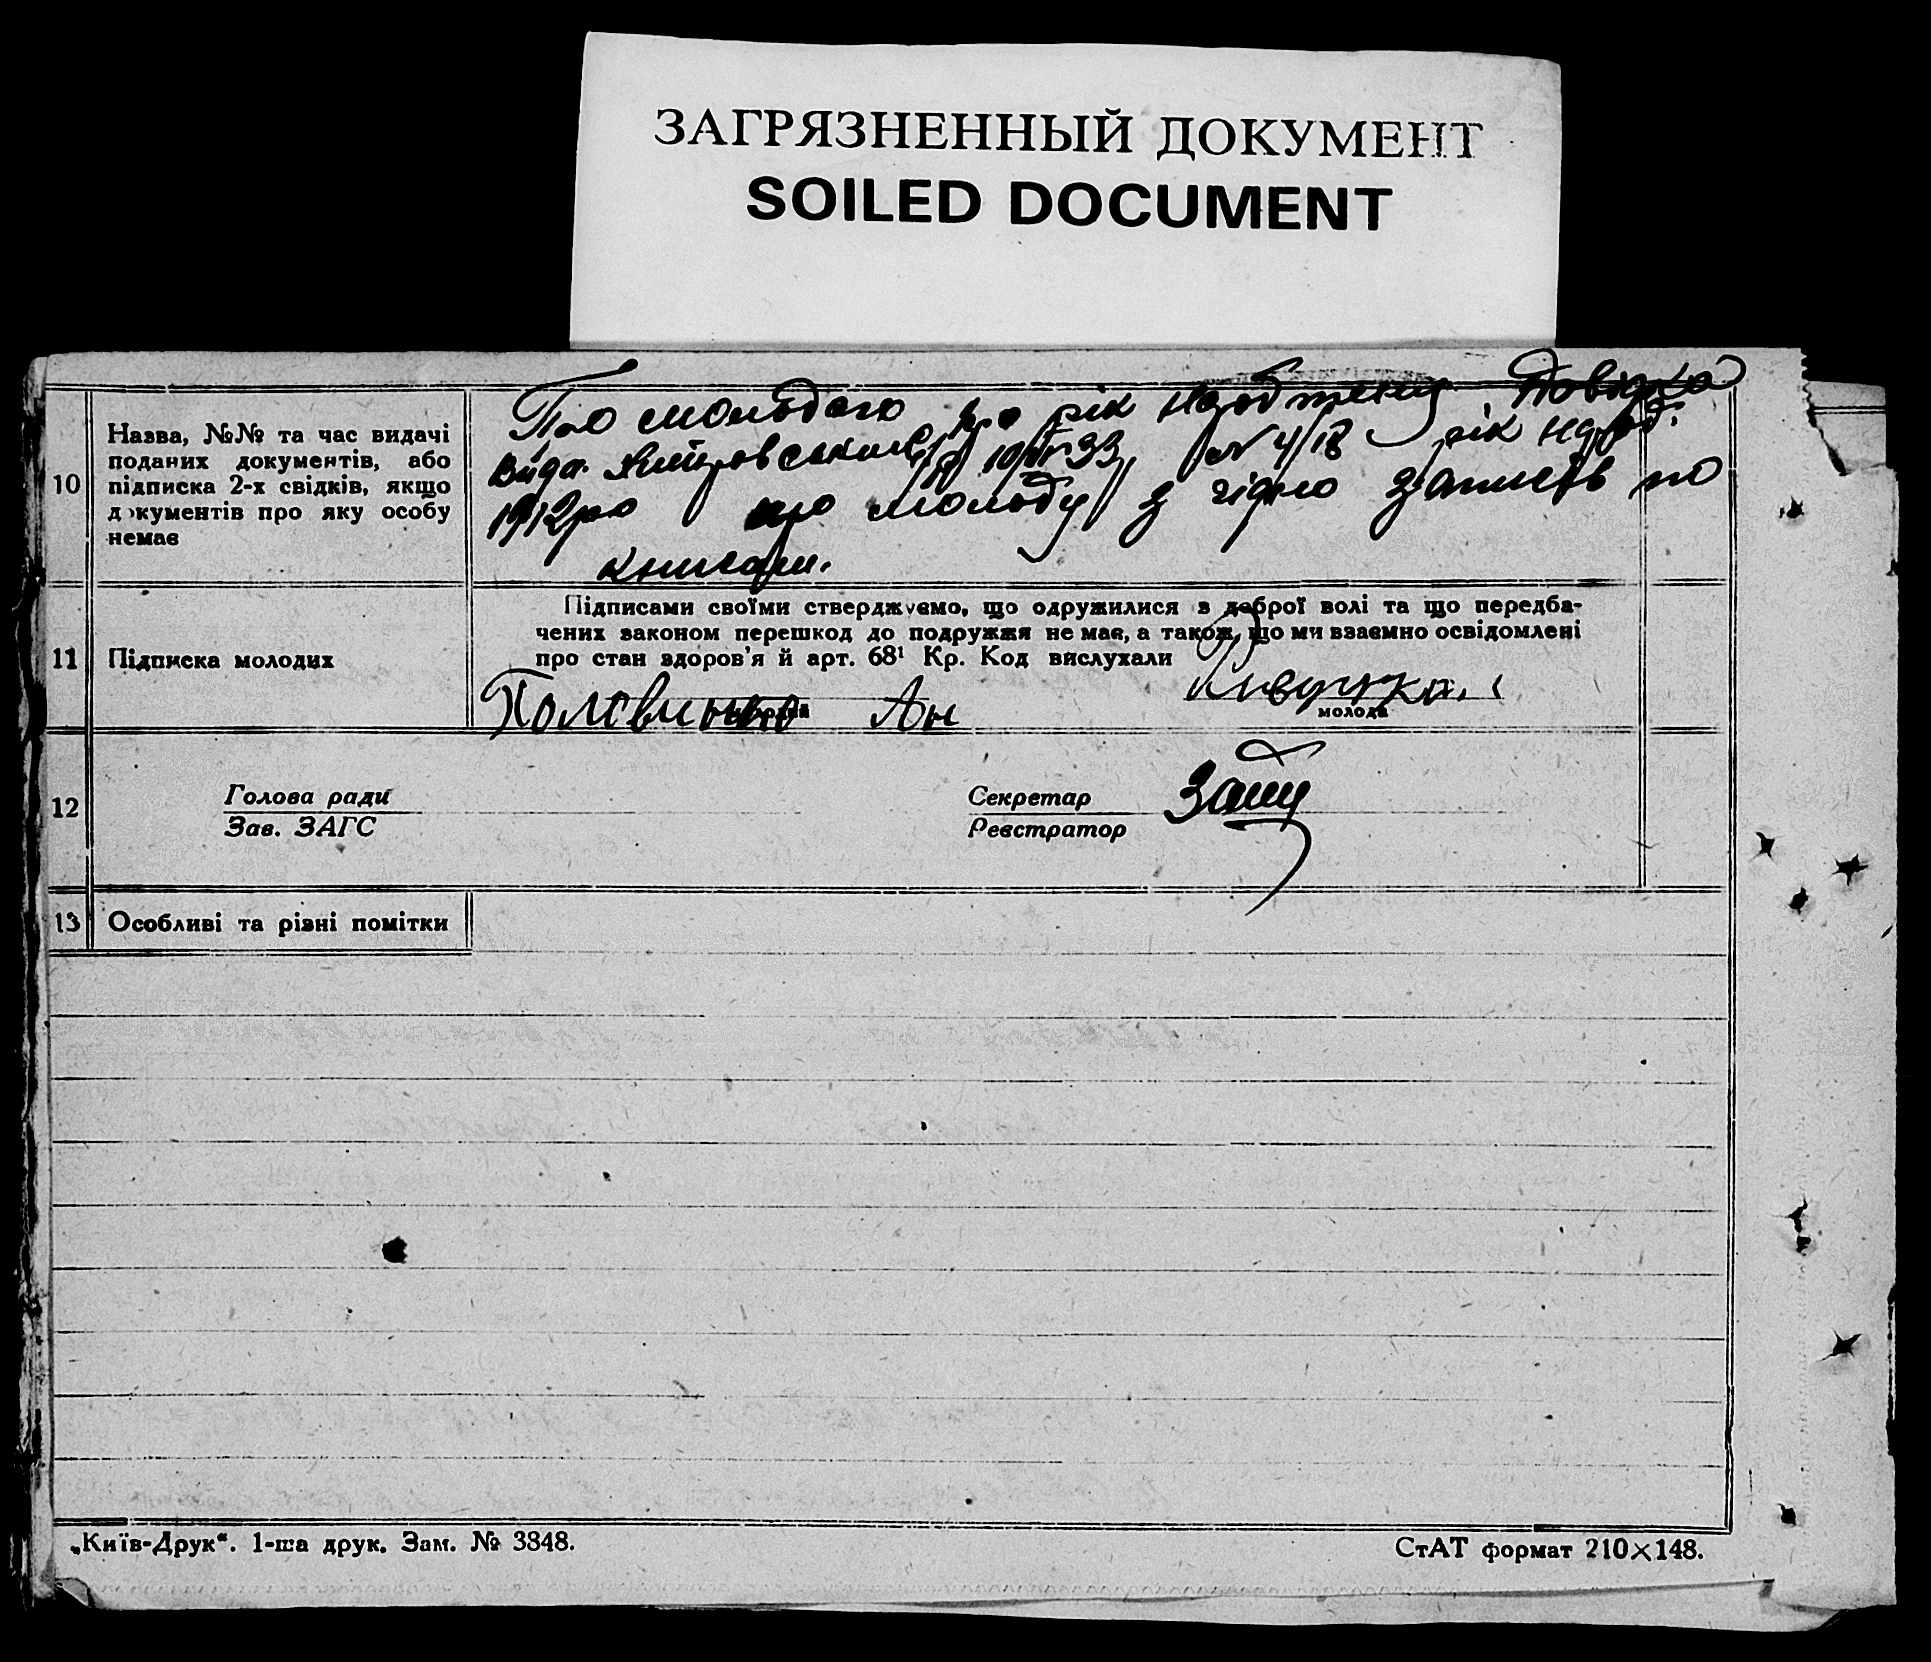 ЗАГРЯЗНЕННЫЙ ДОКУМЕНТ
SOILED DOCUMENT
10
Назва, №№ та час видачі
поданих документів, або
підписка 2-х свідків, якщо
документів про яку особу
немає
Про молодого про рік народження Довідка
Вида. 10/VI 33 № 4/18 рік народ.
1912 про молоду згідно записів по
книгам.
11
Підписка молодих
Підписами своїми стверджуємо, що одружилися з доброї волі та що передба-
чених законом перешкод до подружжя не має, а також, що ми взаємно освідомлені
про стан здоров'я й арт. 68¹ Кр. Код вислухали
Половинко Ан
молода
12
Голова ради
Зав. ЗАГС
Секретар
Реєстратор
13
Особливі та різні помітки
„Київ-Друк“. 1-ша друк. Зам. № 3848.
СтАТ формат 210×148.